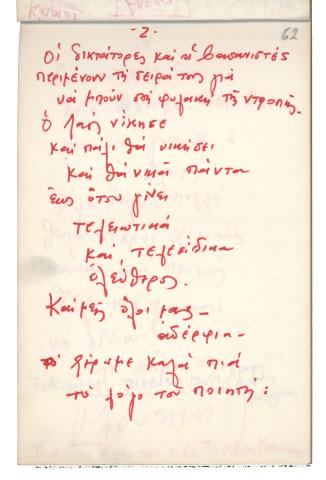 -2-
62
Οἱ δικτάτορες καὶ οἱ βασανιστές
περιμένουν τὴ σειρά τους γιά
νὰ μποῦν στὴ φυλακὴ τῆς ντροπῆς.
Ὁ λαός νίκησε
καὶ πάλι θὰ νικήσει
καὶ θὰ νικᾶ πάντα
ἕως ὅτου γίνει
τελειωτικά
καὶ τελεσίδικα
ἐλεύθερος.
Καὶ μεῖς ὅλοι μας -
ἀδέρφια -
ξέραμε καλά πιά
τὸ λόγο τοῦ ποιητῆ: